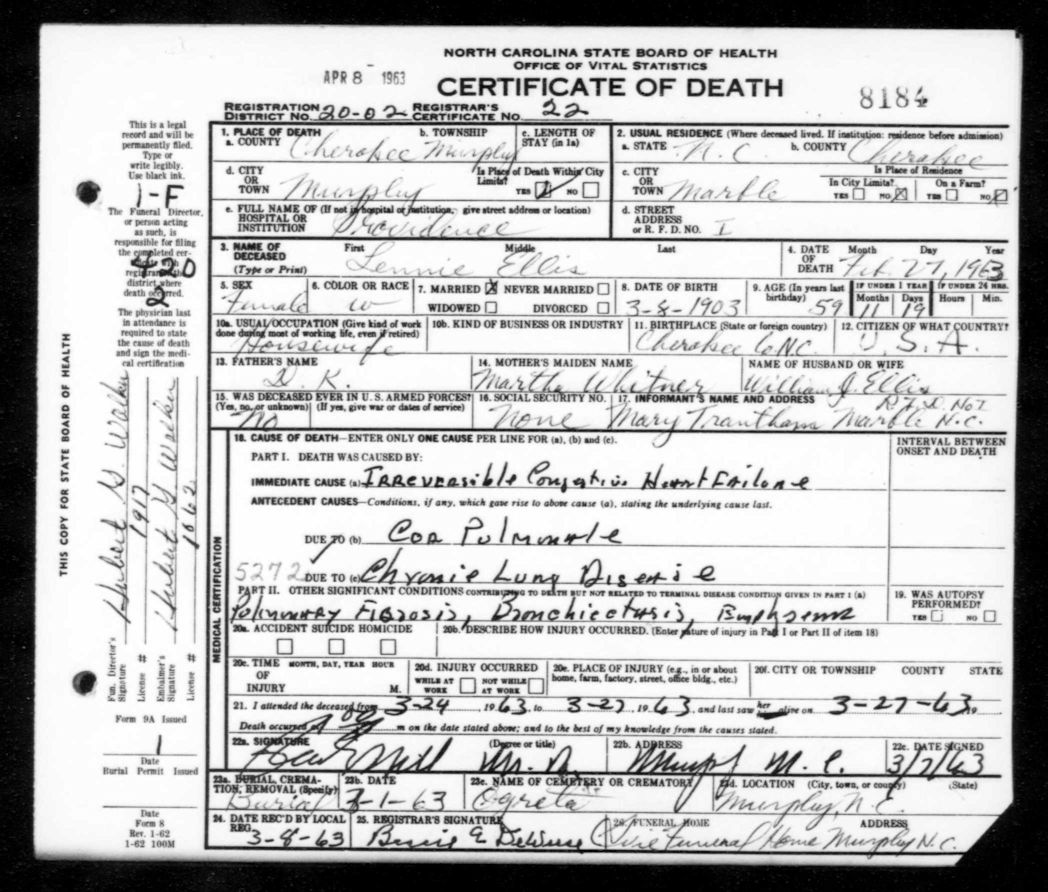 NORTH CAROLINA STATE BOARD OF HEALTH
OFFICE OF VITAL STATISTICS
APR 8 1963
CERTIFICATE OF DEATH
8184
REGISTRATION DISTRICT NO. 20-02 REGISTRAR'S CERTIFICATE NO. 22
This is a legal
record and will be
permanently filed.
Type or
write legibly.
Use black ink.
1-F
The Funeral Director,
or person acting
as such, is
responsible for filing
the completed cer-
tificate with
registrar of the
district where
death occurred.
420
2
The physician last
in attendance is
required to state
the cause of death
and sign the medi-
cal certification
THIS COPY FOR STATE BOARD OF HEALTH
Fun. Director's Signature Hubert G. Walker
License # 1917
Embalmer's Signature Hubert G Walker
License # 1062
Form 9A Issued
1
Date
Burial Permit Issued
Date
Form 8
Rev. 1-62
1-62 100M
1. PLACE OF DEATH
a. COUNTY Cherokee
b. TOWNSHIP Murphy
c. LENGTH OF STAY (in 1a)
2. USUAL RESIDENCE (Where deceased lived. If institution: residence before admission)
a. STATE N. C. b. COUNTY Cherokee
d. CITY OR TOWN Murphy
Is Place of Death Within City Limits?
YES NO
c. CITY OR TOWN Marble
Is Place of Residence
In City Limits? On a Farm?
YES NO X YES NO X
e. FULL NAME OF (If not in hospital or institution, give street address or location)
HOSPITAL OR
INSTITUTION Providence
d. STREET
ADDRESS
or R. F. D. NO. I
3. NAME OF DECEASED (Type or Print)
First Middle Last
Lennie Ellis
4. DATE OF DEATH Month Day Year
Feb. 27, 1963
5. SEX Female
6. COLOR OR RACE W
7. MARRIED X NEVER MARRIED
WIDOWED DIVORCED
8. DATE OF BIRTH 3-8-1903
9. AGE (In years last birthday) 59
IF UNDER 1 YEAR IF UNDER 24 HRS.
Months 11 Days 19 Hours Min.
10a. USUAL OCCUPATION (Give kind of work done during most of working life, even if retired)
Housewife
10b. KIND OF BUSINESS OR INDUSTRY
11. BIRTHPLACE (State or foreign country)
Cherokee Co N.C.
12. CITIZEN OF WHAT COUNTRY?
U.S.A.
13. FATHER'S NAME
D. K.
14. MOTHER'S MAIDEN NAME
Martha Whitner
NAME OF HUSBAND OR WIFE
William J. Ellis
15. WAS DECEASED EVER IN U. S. ARMED FORCES?
(Yes, no, or unknown) (If yes, give war or dates of service)
No
16. SOCIAL SECURITY NO.
None
17. INFORMANT'S NAME AND ADDRESS
R.F.D. No 1
Mary Trantham Marble N.C.
18. CAUSE OF DEATH—ENTER ONLY ONE CAUSE PER LINE FOR (a), (b) and (c).
INTERVAL BETWEEN ONSET AND DEATH
MEDICAL CERTIFICATION
PART I. DEATH WAS CAUSED BY:
IMMEDIATE CAUSE (a) Irreversible Congestive Heart Failure
ANTECEDENT CAUSES—Conditions, if any, which gave rise to above cause (a), stating the underlying cause last.
DUE TO (b) Cor Pulmonale
5272 DUE TO (c) Chronic Lung Disease
PART II. OTHER SIGNIFICANT CONDITIONS CONTRIBUTING TO DEATH BUT NOT RELATED TO TERMINAL DISEASE CONDITION GIVEN IN PART I (a)
Pulmonary Fibrosis, Bronchiectasis, Emphysema
19. WAS AUTOPSY PERFORMED?
YES NO
20a. ACCIDENT SUICIDE HOMICIDE
20b. DESCRIBE HOW INJURY OCCURRED. (Enter nature of injury in Part I or Part II of item 18)
20c. TIME OF INJURY MONTH, DAY, YEAR HOUR M.
20d. INJURY OCCURRED
WHILE AT WORK NOT WHILE AT WORK
20e. PLACE OF INJURY (e.g., in or about home, farm, factory, street, office bldg., etc.)
20f. CITY OR TOWNSHIP COUNTY STATE
21. I attended the deceased from 3-24, 1963, to 3-27, 1963, and last saw her alive on 3-27-63, 19
Death occurred at m on the date stated above; and to the best of my knowledge from the causes stated.
22a. SIGNATURE (Degree or title)
M. D.
22b. ADDRESS
Murphy N. C.
22c. DATE SIGNED
3/7/63
23a. BURIAL, CREMATION, REMOVAL (Specify)
Burial
23b. DATE
3-1-63
23c. NAME OF CEMETERY OR CREMATORY
Ogreta
23d. LOCATION (City, town, or county) (State)
Murphy, N.C.
24. DATE REC'D BY LOCAL REG.
3-8-63
25. REGISTRAR'S SIGNATURE
26. FUNERAL HOME ADDRESS
Ivie Funeral Home Murphy N.C.